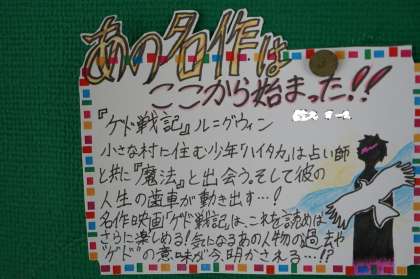 あの名作は
ここから始まった!!
『ゲド戦記』ル=グウィン
小さな村に住む少年「ハイタカ」は占い師
と共に『魔法』と出会う。そして彼の
人生の歯車が動き出す…!
名作映画「ゲド戦記」は、これを読めば
さらに楽しめる!気になるあの人物の過去や
"ゲド"の意味が今、明かされる…!?